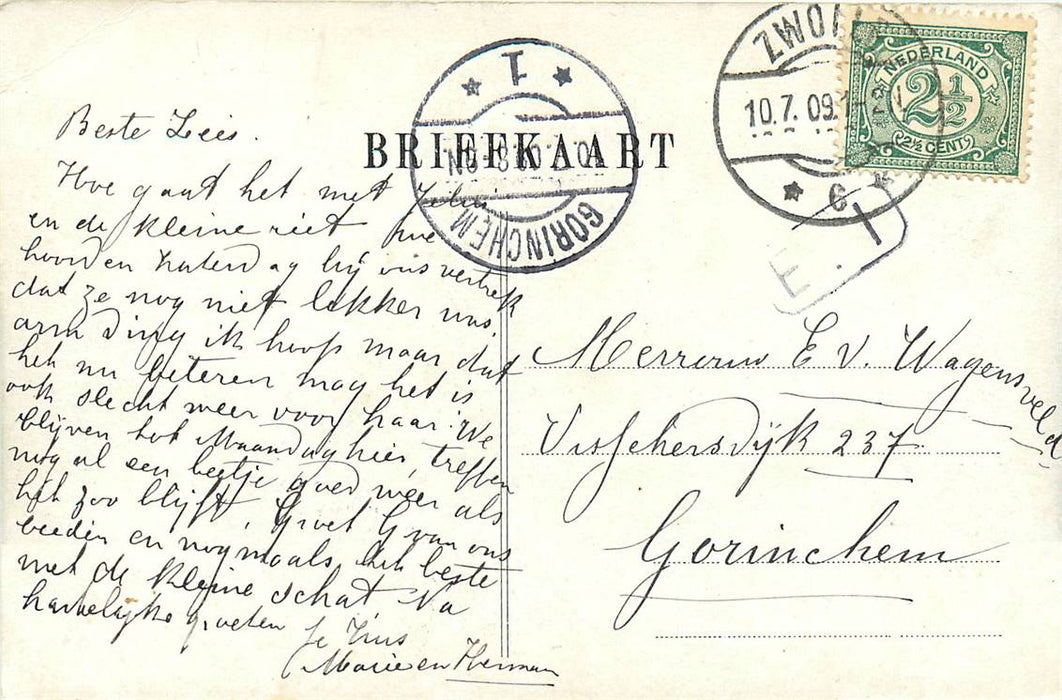 BRIEFKAART
ZWOLLE
10.7.09
6
1
GORINCHEM
NEDERLAND
2½
2½ CENT
E. 1
Beste Zeis.
Hoe gaat het met
en de kleine
hoorden Zaterdag bij ons vertrek
dat ze nog niet lekker was.
arm ding ik hoop maar dat
het nu beteren mag het is
ook slecht weer voor haar. We
blijven tot Maandag hier, treffen
nog al een beetje goed weer als
het zoo blijft. Groet G van ons
beiden en nogmaals het beste
met de kleine schat. Na
hartelijke groeten
je Zus
Marie en Herman
Merrouw E V. Wagensveld
Visschersdijk 237
Gorinchem